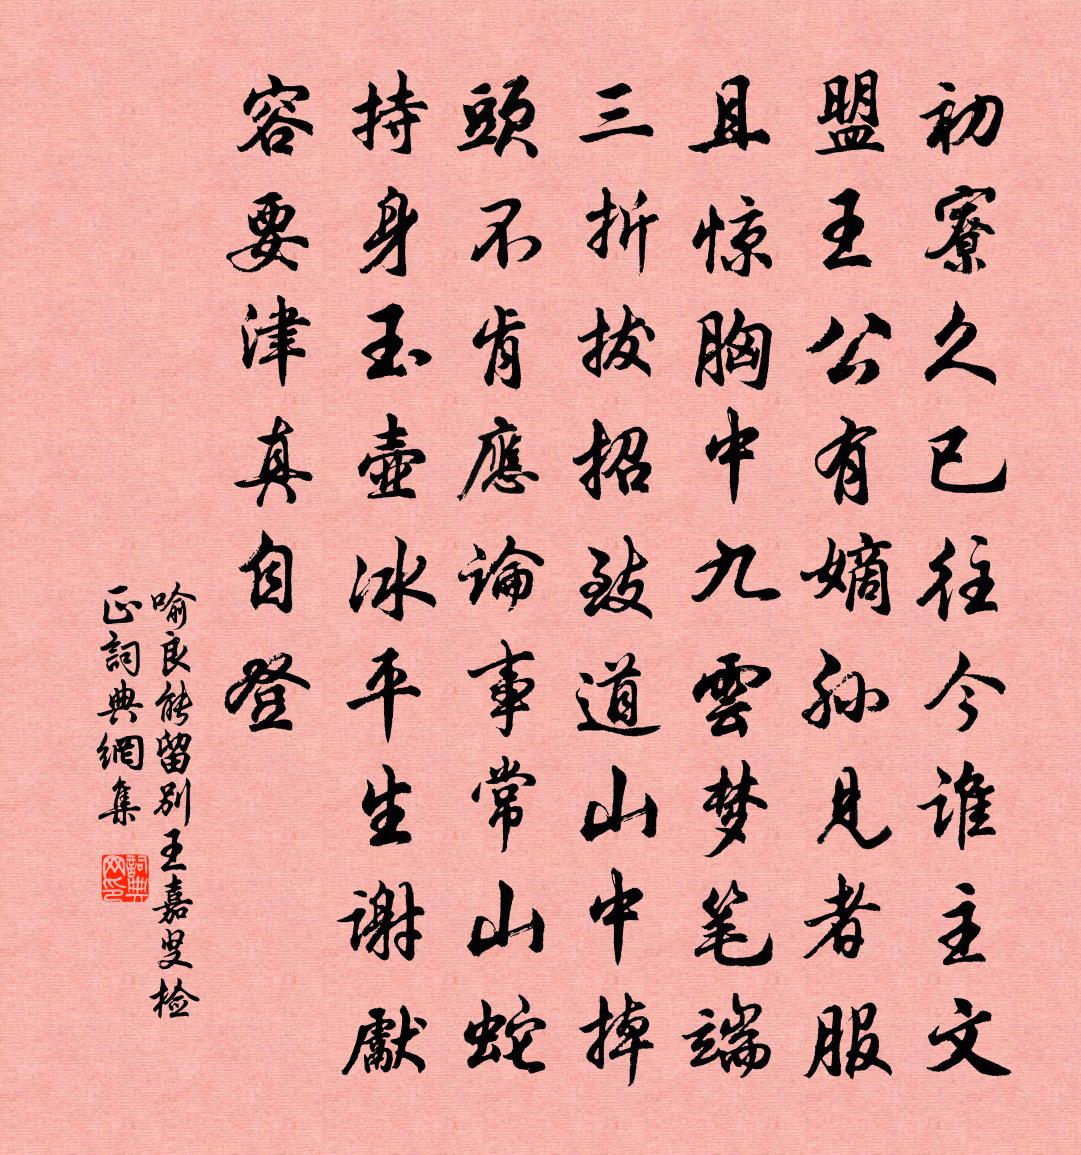 初寮久已往今谁主文
盟王公有嫡孙見者服
且惊胸中九雲梦笔端
三折拔招致道山中掉
頭不肯應論事常山蛇
持身玉壺冰平生谢獻
容要津真自登
喻良能留别王嘉叟检
正詞典網集
詞典网印